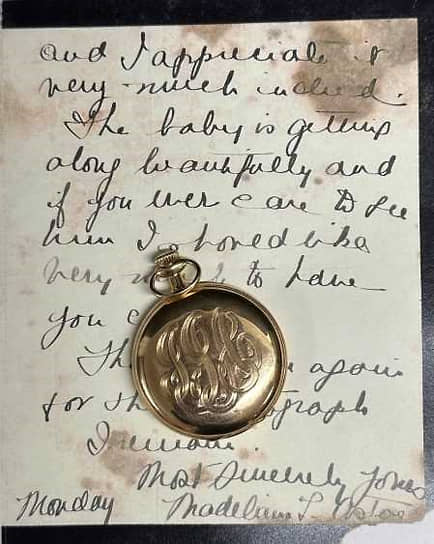 and I appreciate it
very much indeed.
The baby is getting
along beautifully and
if you ever care to see
him I would like
very to have
you
again
for
I remain.
Most Sincerely Yours
Monday Madeleine T. Astor